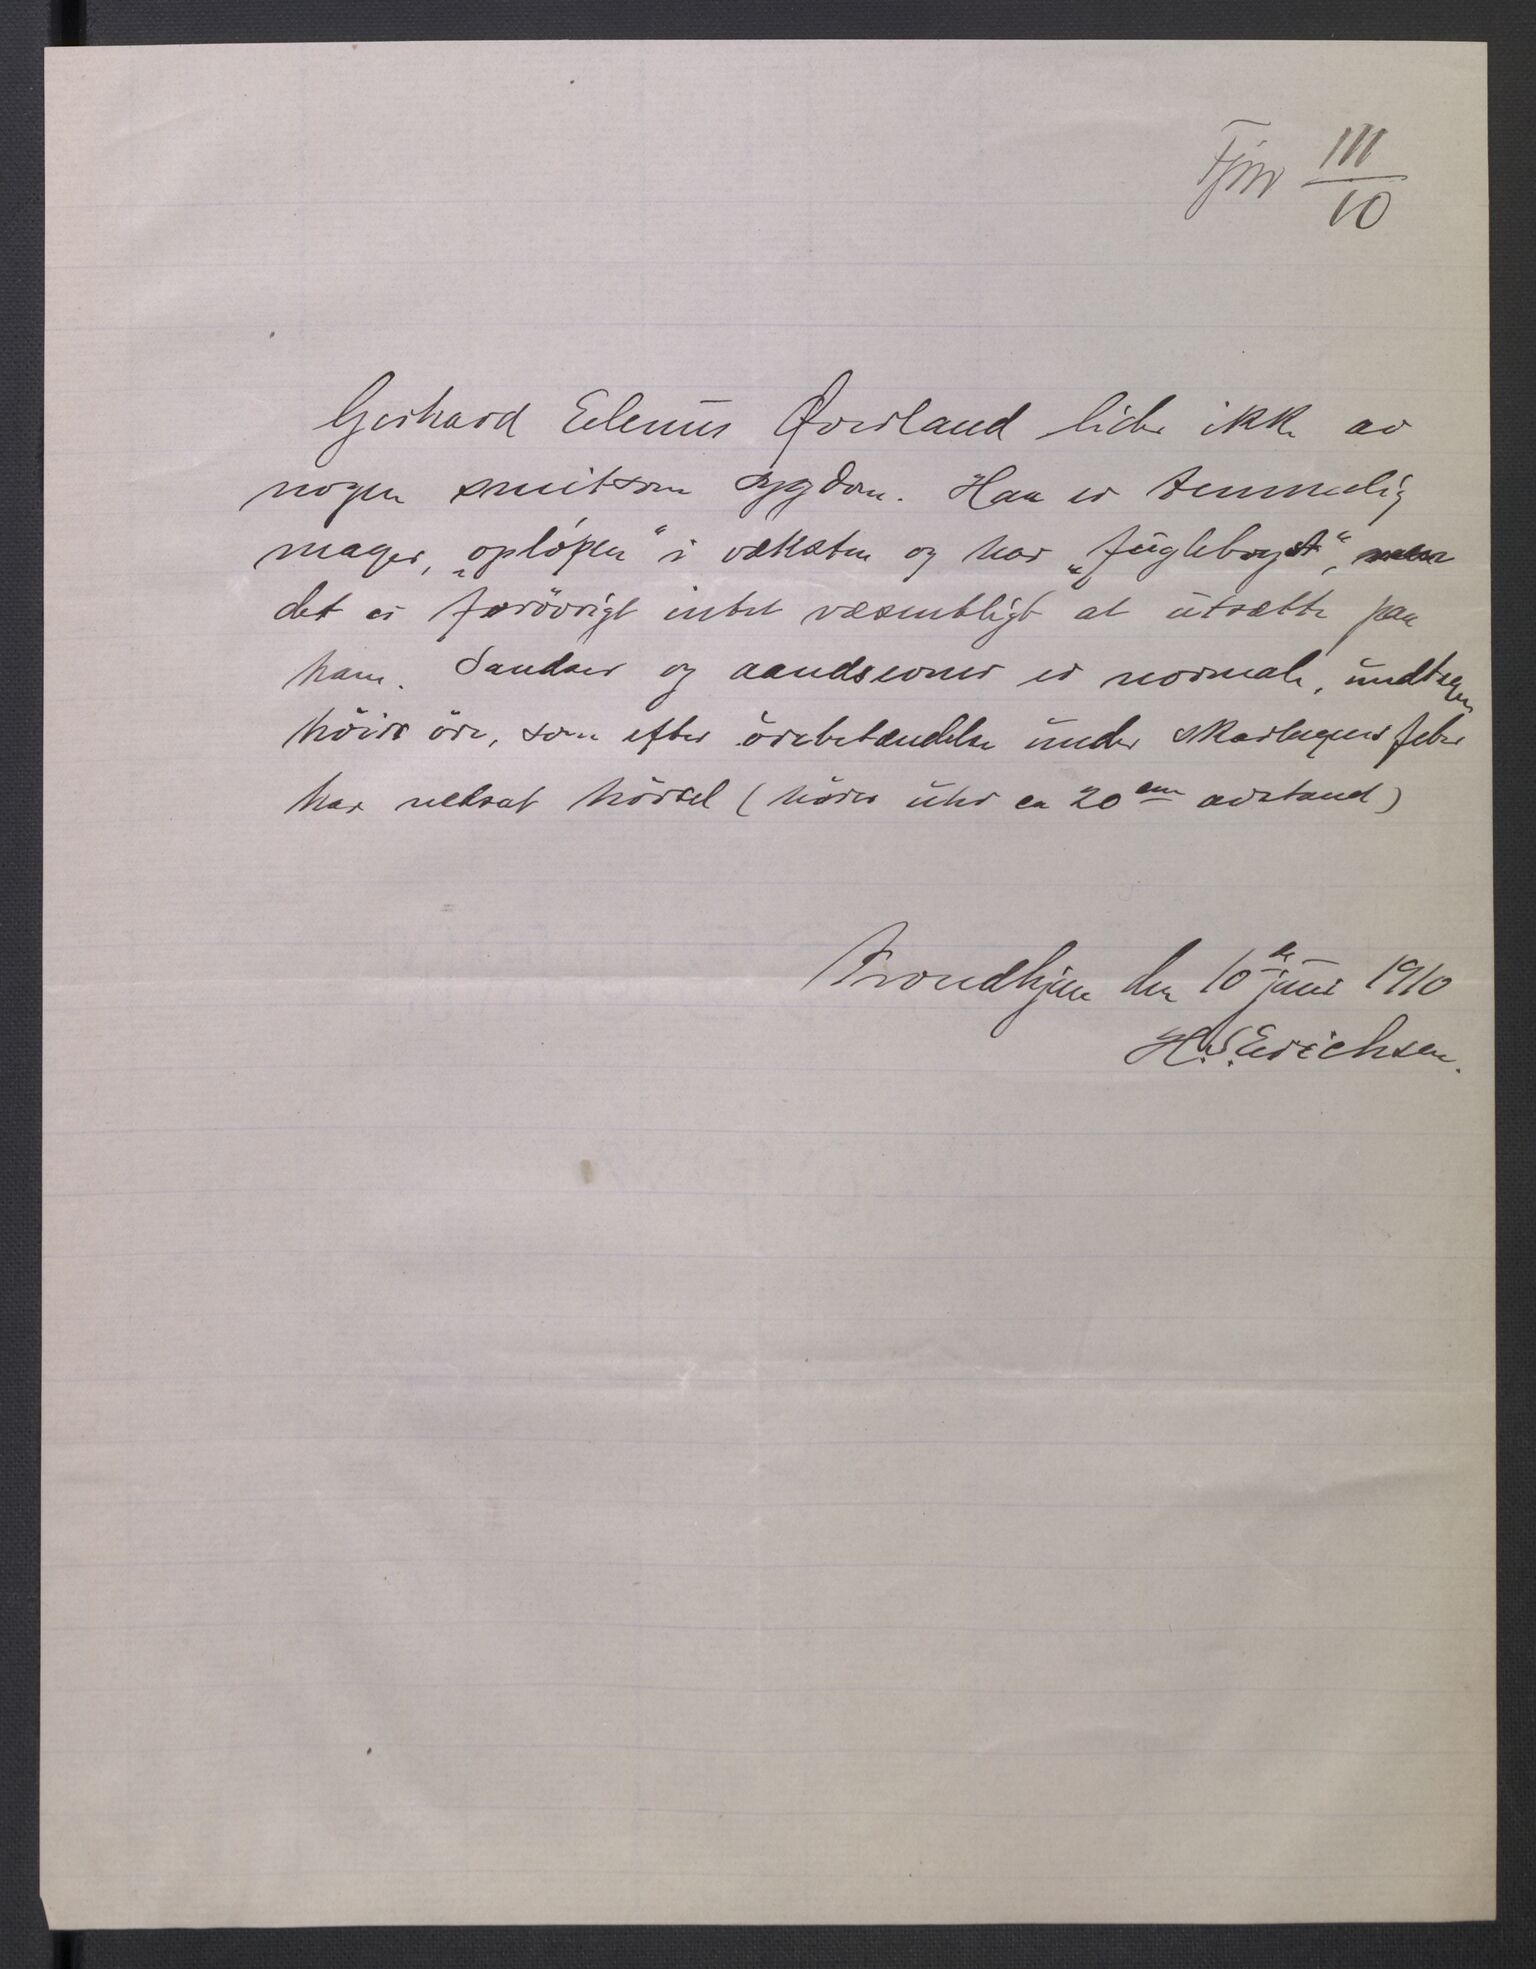 Fjnr 111/10
Gerhard Elenius Øverland lider ikke av
nogen smitsom sygdom. Han er temmelig
mager, „opløpen“ i væksten og har „fuglebryst“, men
det er forøvrigt intet væsentligt at utsætte paa
ham. Sandser og aandsevner er normale, undtagen
høire øre, som efter ørebetændelse under skarlagensfeber
har nedsat hørsel (hører uhr ca 20 cm avstand)
Trondhjem den 10de juni 1910
H.S. Erichsen.